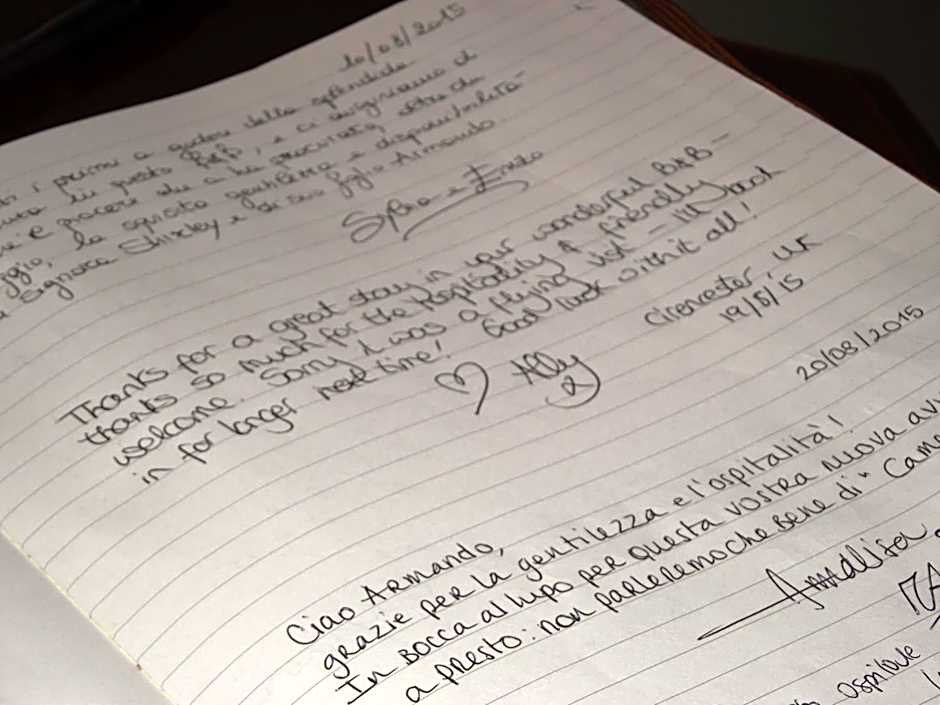 10/08/2015
i primi a godere della splendida
questo B&B, e ci auguriamo di
piacere che ci ha procurato, oltre che
la squisita gentilezza e disponibilità
Signora Shirley e di suo figlio Armando.
Thanks for a great stay in your wonderful B&B –
thanks so much for the hospitality & friendly
welcome. Sorry it was a flying visit – I'll book
in for longer next time! Good luck with it all!
♡ Ally
Cirencester, UK
19/8/15
20/08/2015
Ciao Armando,
grazie per la gentilezza e l'ospitalità!
In bocca al lupo per questa vostra nuova avv
a presto: non parleremo che bene di "Cam
Annalisa
ospitale